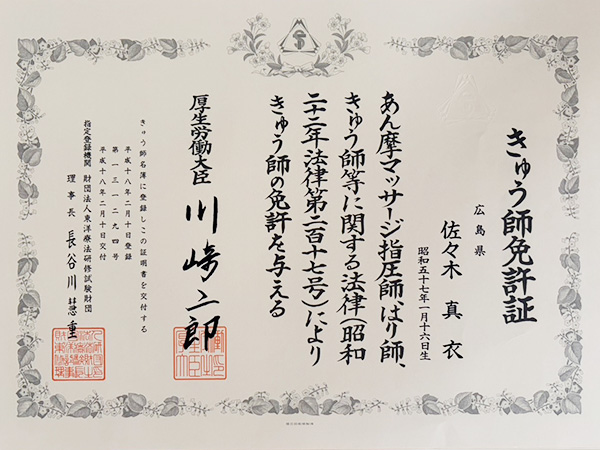 きゅう師免許証
広島県
佐々木真衣
昭和五十七年一月十六日生
あん摩マッサージ指圧師、はり師、
きゅう師等に関する法律(昭和
二十二年法律第二百十七号)により
きゅう師の免許を与える
厚生労働大臣 川崎二郎
きゅう師名簿に登録しこの証明書を交付する
平成十八年二月十日登録
第一三一二九四号
平成十八年二月十日交付
指定登録機関 財団法人東洋療法研修試験財団
理事長 長谷川慧重